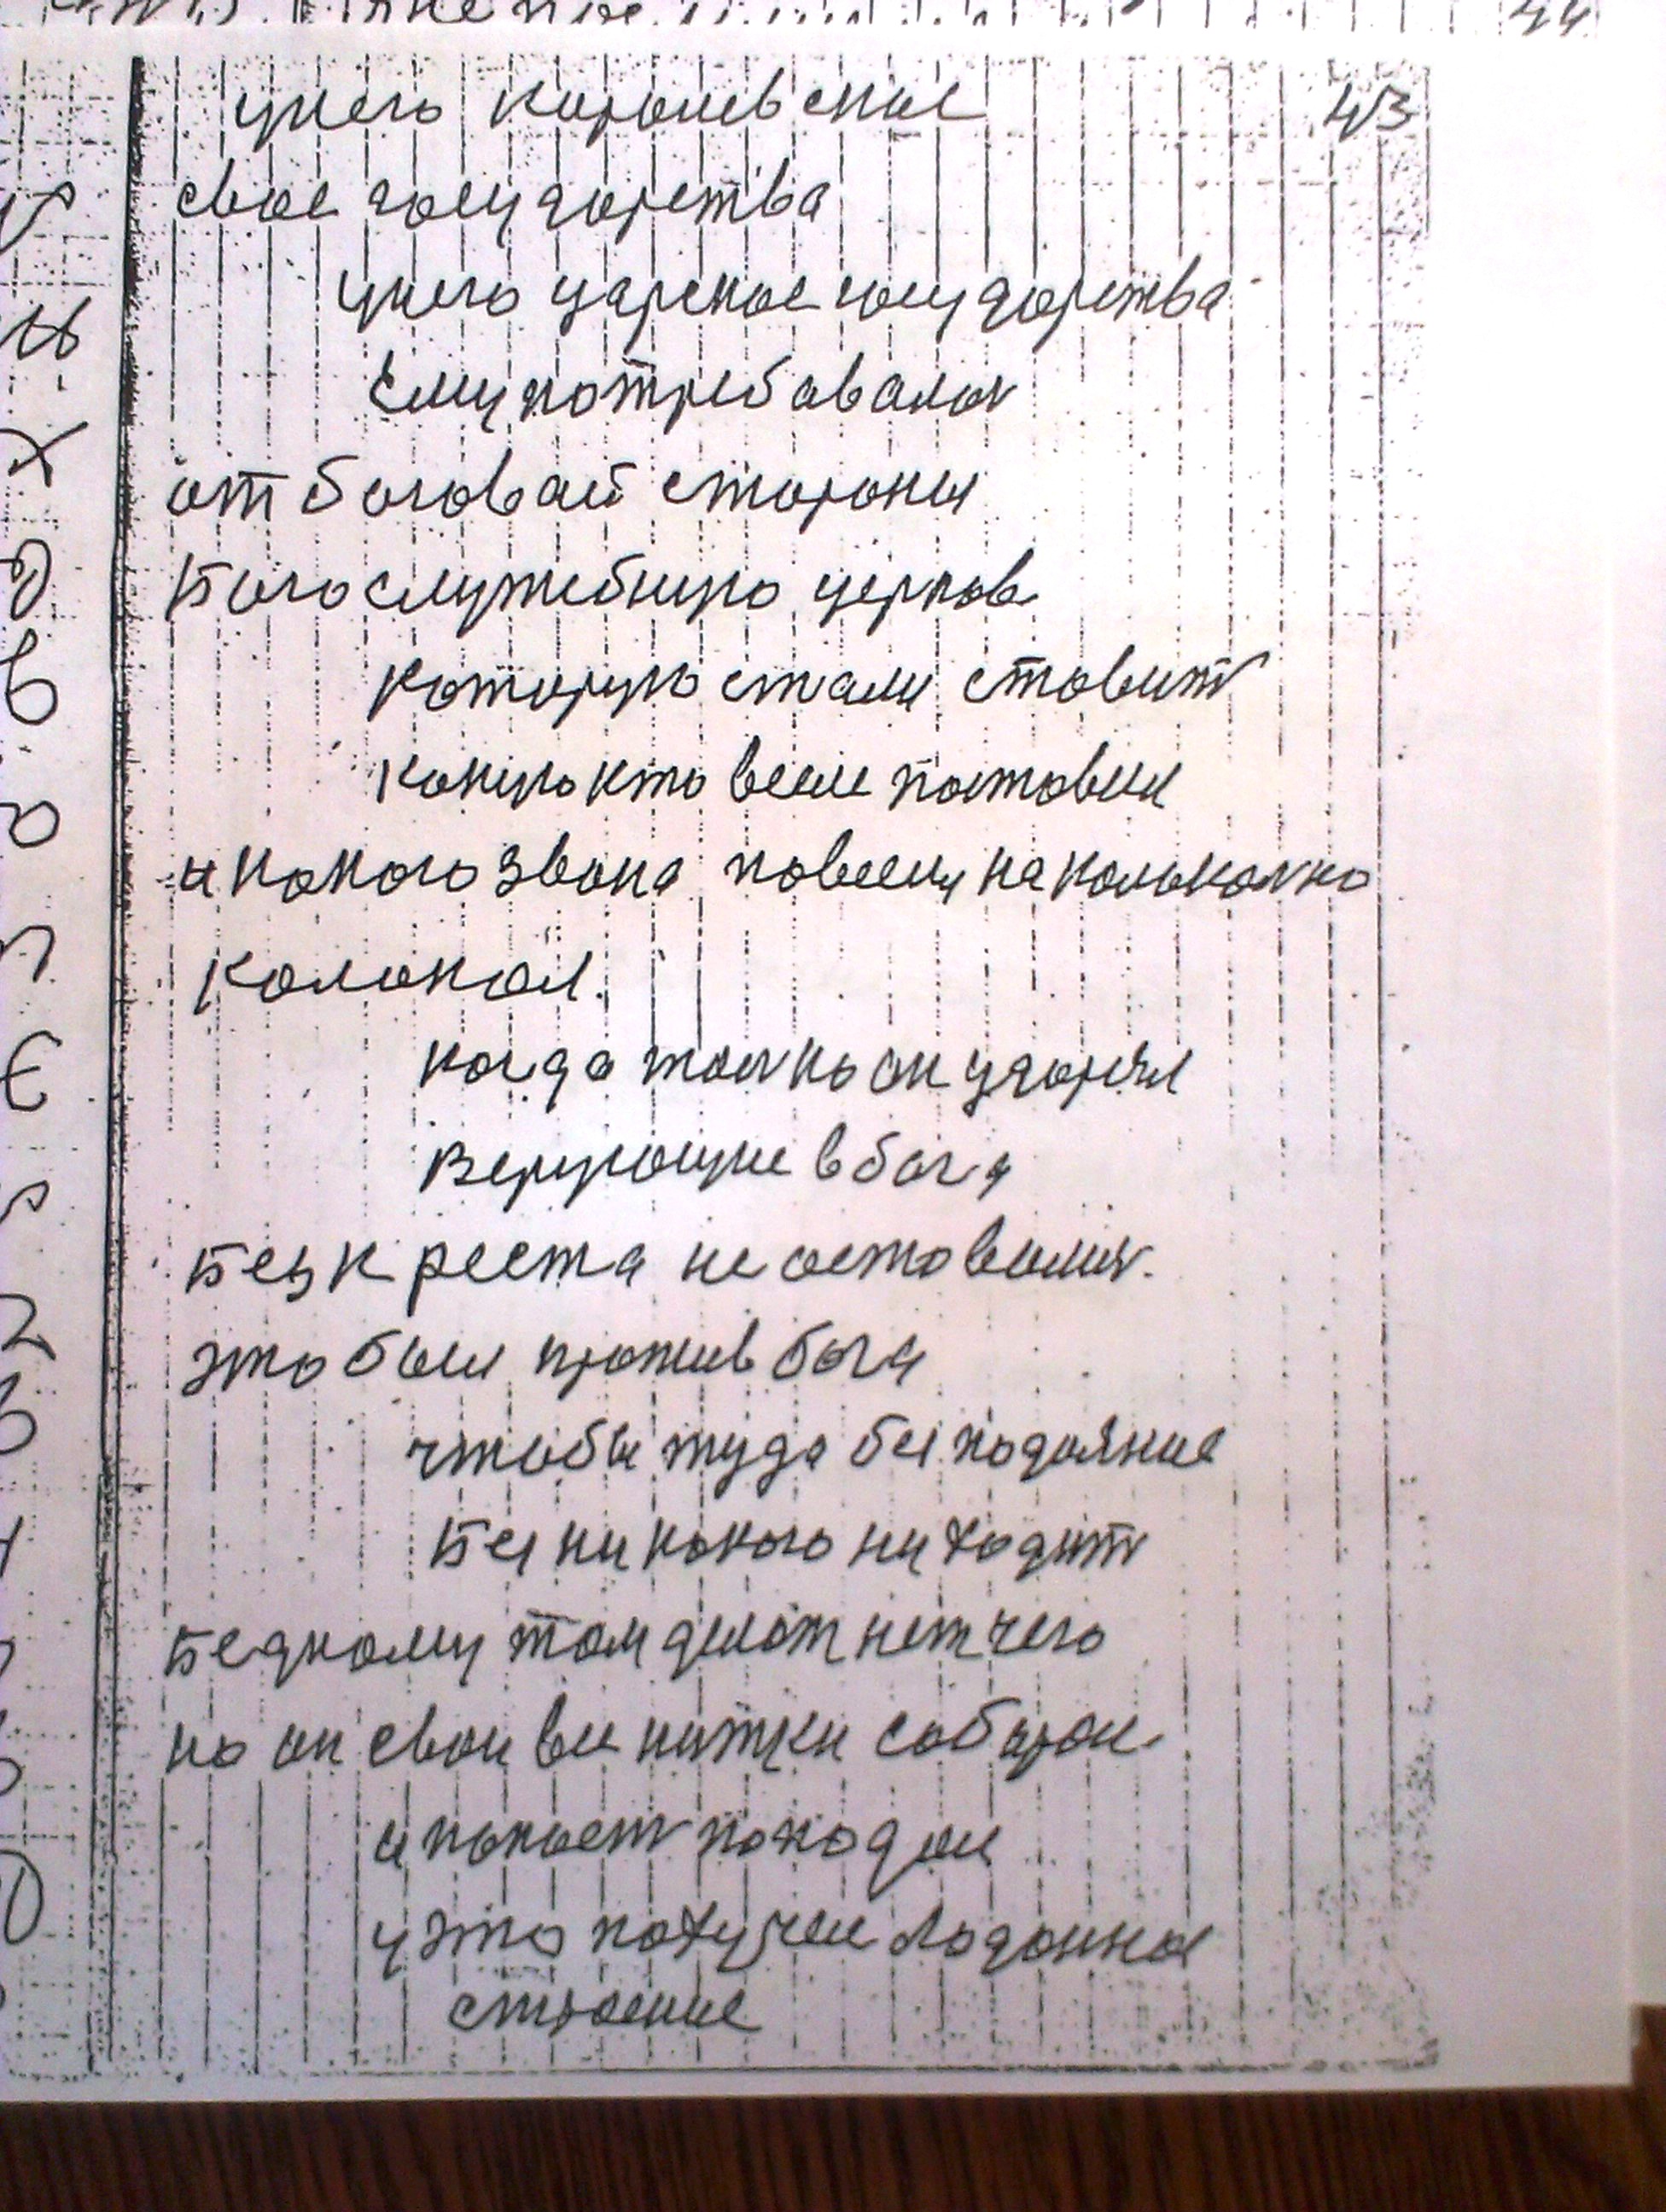 43
унего королевское
свое государства
унего царское государства
Ему потребавалос
от боговай стороны
Богослужебную церков
которую стали ставит
кокую кто веше поставил
и кокого звона повесил на колоколню
колокол.
когда толко он ударял
Верующие в бога
Без креста не оставолис.
это был против бога
чтобы туда бы подаяние
Бы никокого ни ходит
Бедному там делат нечего
но он свои все нитки собирал
и покоест походил
у это получил
строение